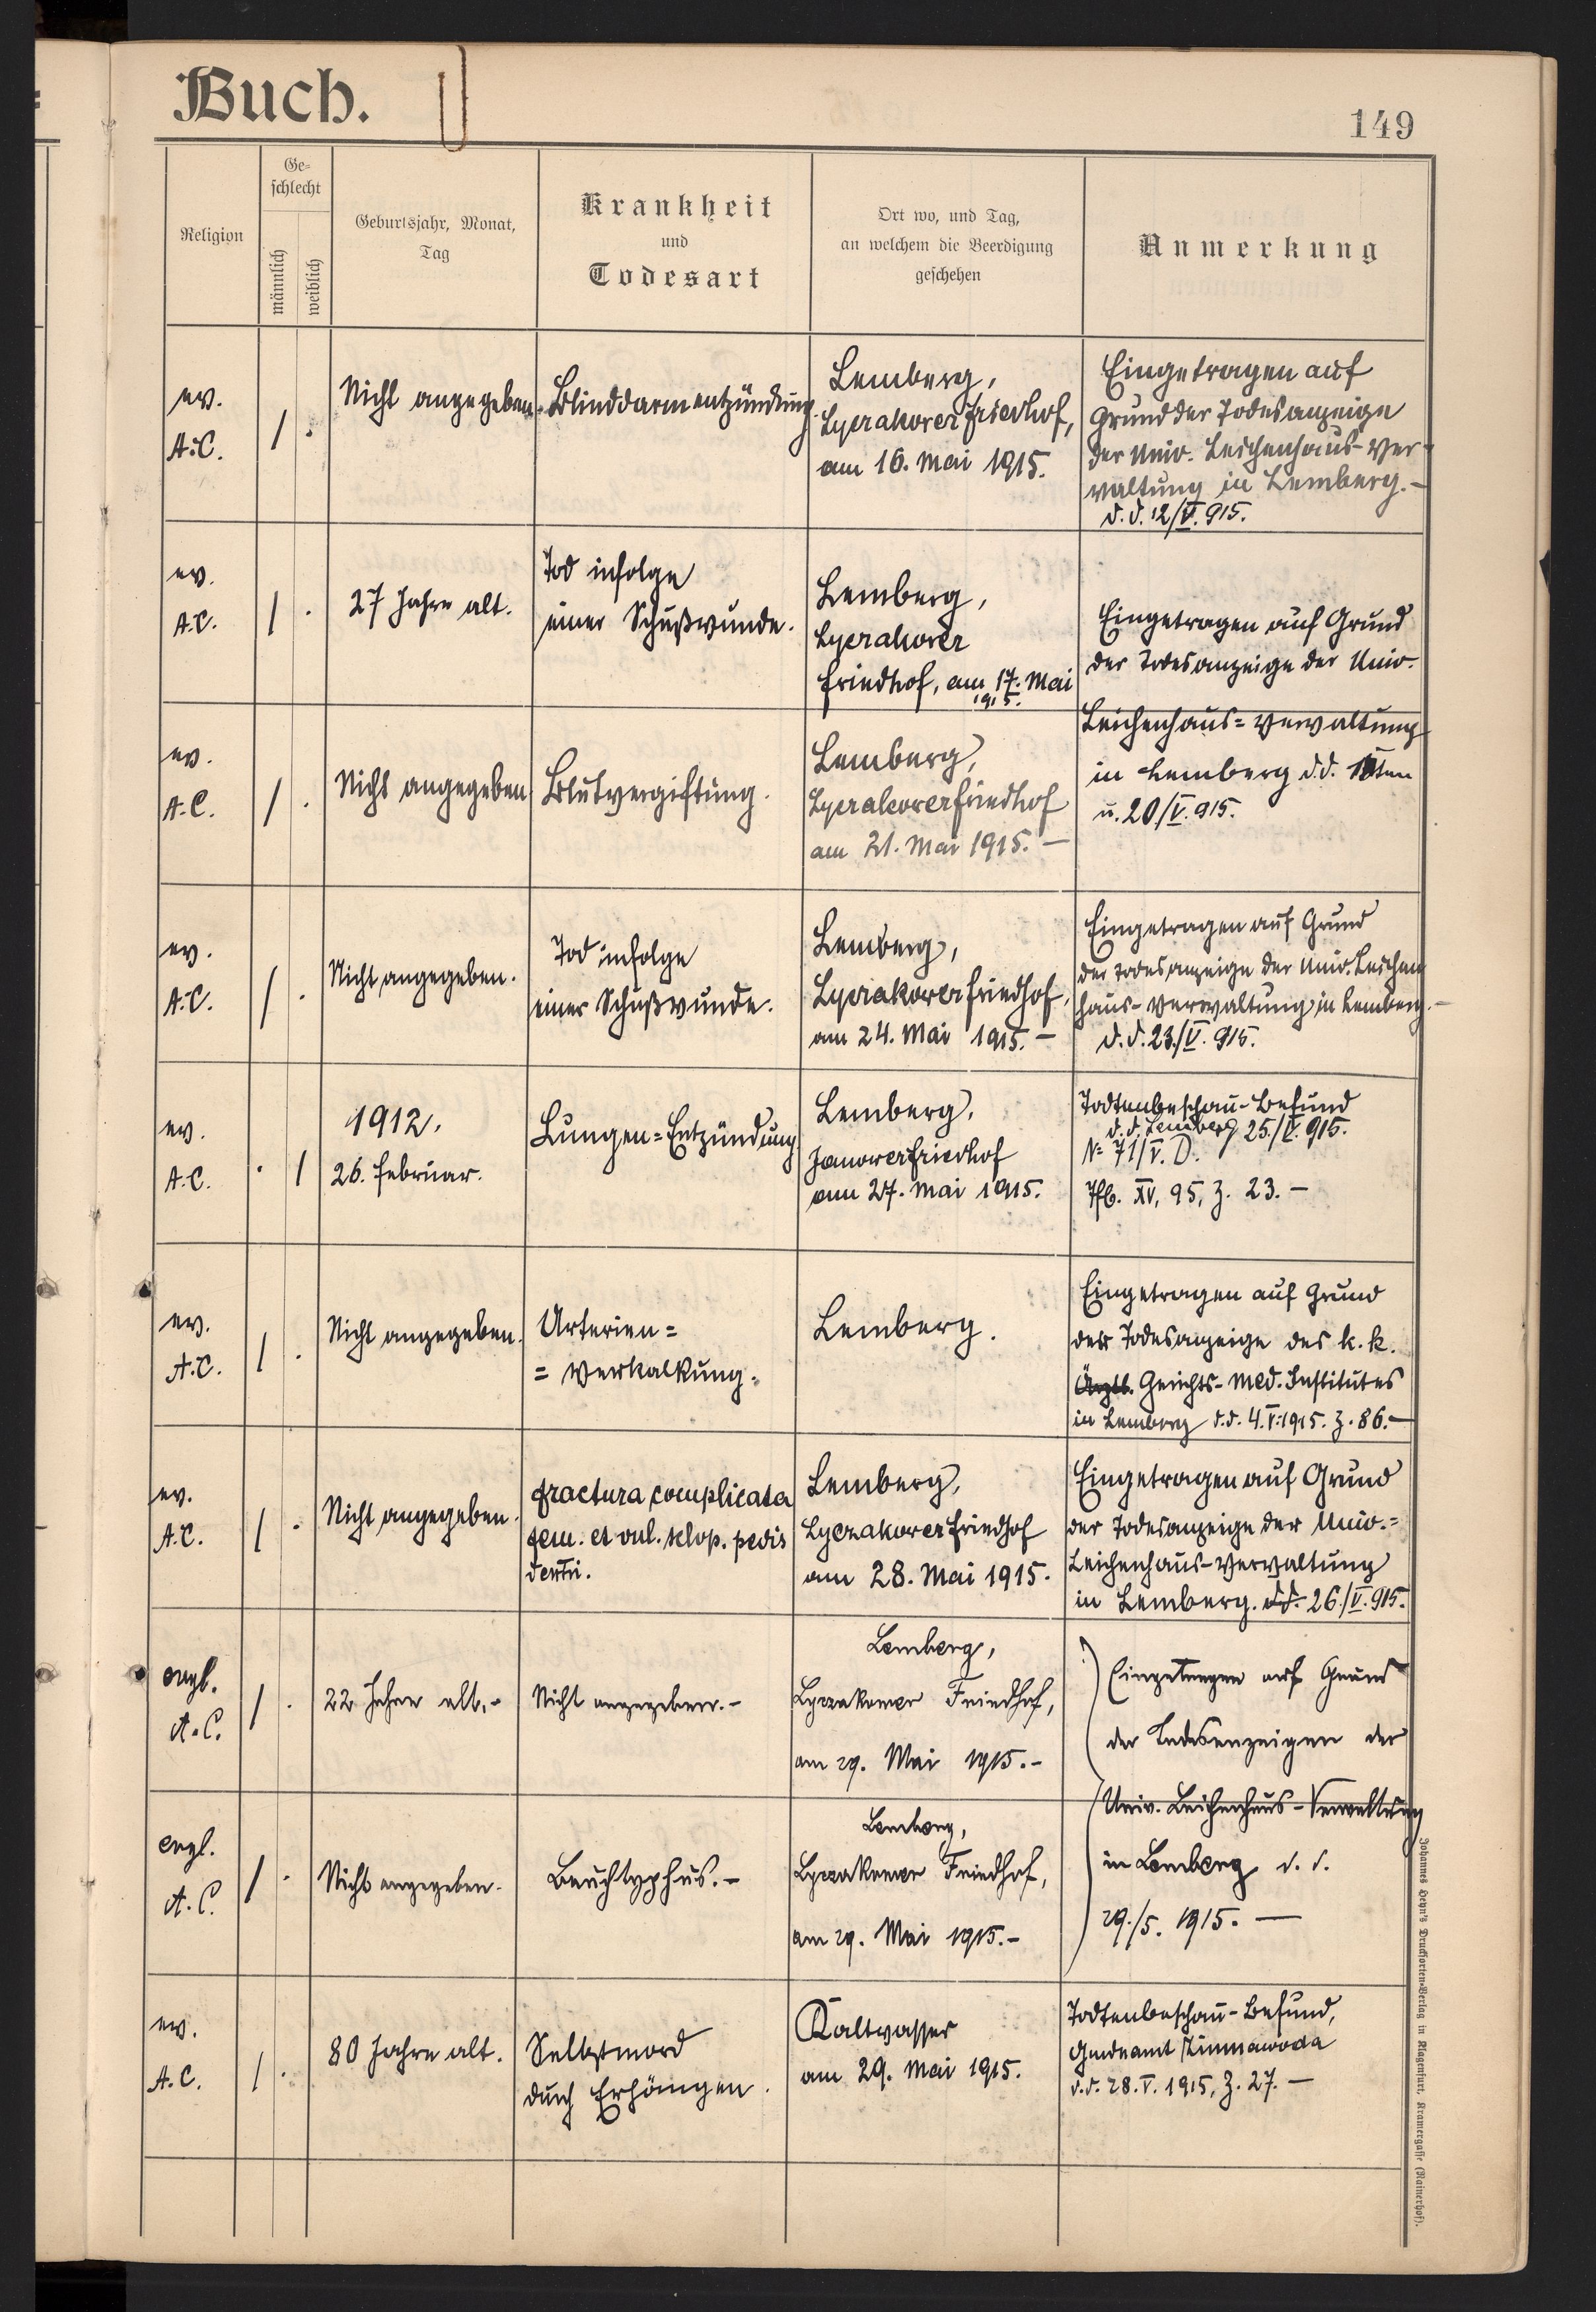 Buch.
149
Religion
Ge=
schlecht
männlich
weiblich
Geburtsjahr, Monat,
Tag
Krankheit
und
Todesart
Ort wo, und Tag,
an welchem die Beerdigung
geschehen
Anmerkung
ev.
A.C.
/ .
Nicht angegeben.
Blinddarmentzündung.
Lemberg,
Lyczakover Friedhof,
am 16. Mai 1915.
Eingetragen auf
Grund der Todesanzeige
der Univ. Leichenhaus-Ver-
waltung in Lemberg.-
d.d. 12/V. 915.
ev.
A.C.
/ .
27 Jahre alt.
Tod infolge
einer Schußwunde.
Lemberg,
Lyczakover
Friedhof, am 17. Mai
1915.
Eingetragen auf Grund
der Todesanzeige der Univ.
Leichenhaus=Verwaltung
in Lemberg d.d.
u. 20/V. 915.
ev.
A.C.
/ .
Nicht angegeben
Blutvergiftung.
Lemberg,
Lyczakover Friedhof
am 21. Mai 1915.-
ev.
A.C.
/ .
Nicht angegeben.
Tod infolge
einer Schußwunde.
Lemberg,
Lyczakover Friedhof,
am 24. Mai 1915.-
Eingetragen auf Grund
der Todesanzeige der Univ. Leichen
haus-Verwaltung in Lemberg.-
d.d. 23./V. 915.
ev.
A.C.
. /
1912.
26. Februar.
Lungen=Entzündung
Lemberg,
Janover Friedhof
am 27. Mai 1915.
Todtenbeschau-Befund
d.d. Lemberg 25./V. 915.
No 71/V. D.
Tfb. XV, 95, Z. 23.-
ev.
A.C.
/ .
Nicht angegeben.
Arterien=
=Verkalkung.
Lemberg.
Eingetragen auf Grund
der Todesanzeige des k.k.
Ärztl. Gerichts-med. Institutes
in Lemberg d.d. 4.V.1915. Z. 86.-
ev.
A.C.
/ .
Nicht angegeben.
fractura complicata
fem. et vul. sclop. pedis
dextri.
Lemberg,
Lyczakover Friedhof
am 28. Mai 1915.
Eingetragen auf Grund
der Todesanzeige der Univ.=
Leichenhaus-Verwaltung
in Lemberg. d.d. 26./V. 915.
evgl.
A.C.
/ .
22 Jahre alt.-
Nicht angegeben.-
Lemberg,
Lyczakower Friedhof,
am 29. Mai 1915.-
Eingetragen auf Grund
der Todesanzeigen der
Univ. Leichenhaus-Verwaltung
in Lemberg d.d.
29./5. 1915.-
evgl.
A.C.
/ .
Nicht angegeben.
Bauchtyphus.-
Lemberg,
Lyczakower Friedhof,
am 29. Mai 1915.-
ev.
A.C.
/ .
80 Jahre alt.
Selbstmord
durch Erhängen.
Kaltwasser
am 29. Mai 1915.
Todtenbeschau-Befund,
Gmdeamt Zimnawoda
d.d. 28.V. 1915, Z. 27.-
Johannes Heyn's Drucksorten-Verlag in Klagenfurt, Kramergasse (Rainerhof).